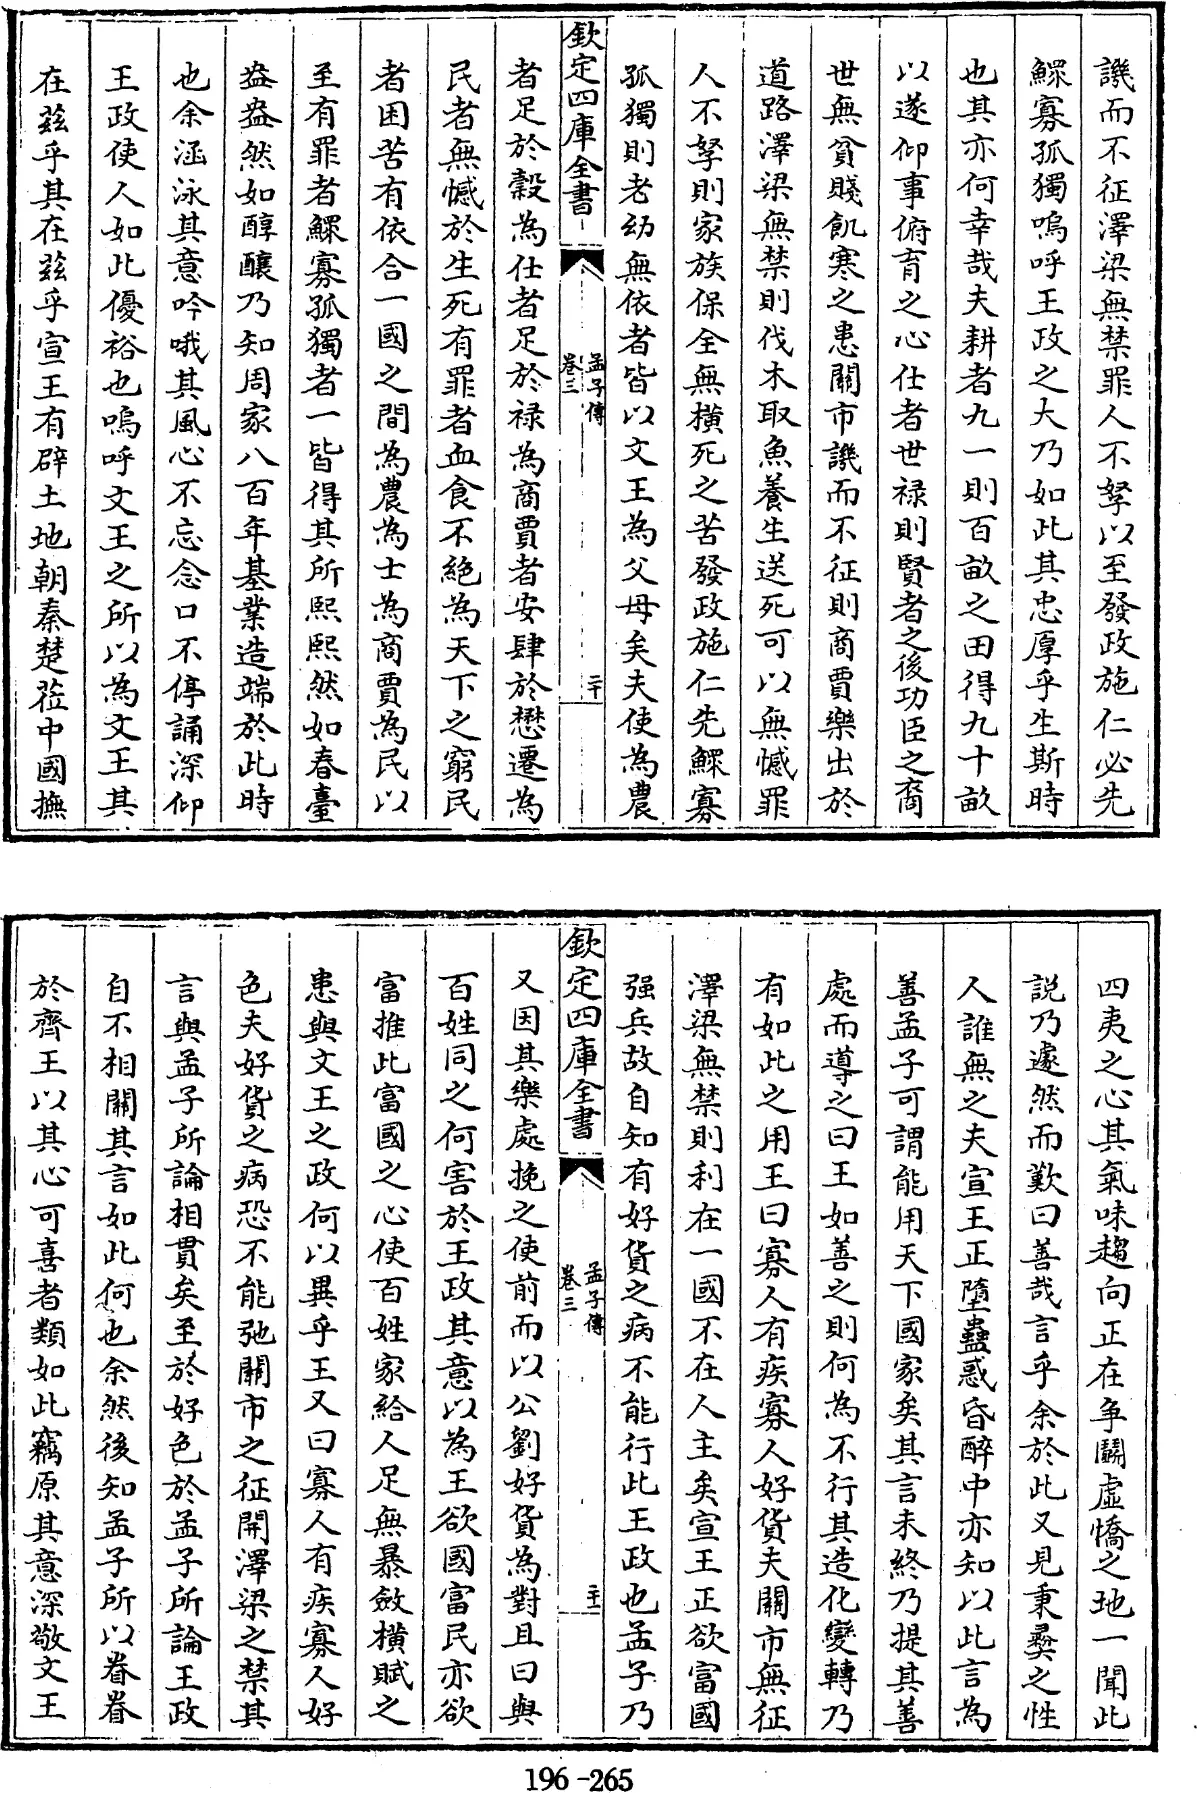 譏而不征澤梁無禁罪人不孥以至發政施仁必先
鰥寡孤獨嗚呼王政之大乃如此其忠厚乎生斯時
也其亦何幸哉夫耕者九一則百畝之田得九十畝
以遂仰事俯育之心仕者世禄則賢者之後功臣之裔
世無貧賤飢寒之患關市譏而不征則商賈樂出於
道路澤梁無禁則伐木取魚養生送死可以無憾罪
人不孥則家族保全無橫死之苦發政施仁先鰥寡
孤獨則老幼無依者皆以文王為父母矣夫使為農
欽定四庫全書
孟子傳
卷三
二十
者足於穀為仕者足於禄為商賈者安肆於懋遷為
民者無憾於生死有罪者血食不絶為天下之窮民
者困苦有依合一國之間為農為士為商賈為民以
至有罪者鰥寡孤獨者一皆得其所熙熙然如春臺
盎盎然如醇釀乃知周家八百年基業造端於此時
也余涵泳其意吟哦其風心不忘念口不停誦深仰
王政使人如此優裕也嗚呼文王之所以為文王其
在兹乎其在兹乎宣王有辟土地朝秦楚莅中國撫
四夷之心其氣味趨向正在争鬭虚憍之地一聞此
説乃遽然而歎曰善哉言乎余於此又見秉彝之性
人誰無之夫宣王正墮蠱惑昏醉中亦知以此言為
善孟子可謂能用天下國家矣其言未終乃提其善
處而導之曰王如善之則何為不行其造化變轉乃
有如此之用王曰寡人有疾寡人好貨夫關市無征
澤梁無禁則利在一國不在人主矣宣王正欲富國
强兵故自知有好貨之病不能行此王政也孟子乃
欽定四庫全書
孟子傳
卷三
二十一
又因其樂處挽之使前而以公劉好貨為對且曰與
百姓同之何害於王政其意以為王欲國富民亦欲
富推此富國之心使百姓家給人足無暴斂橫賦之
患與文王之政何以異乎王又曰寡人有疾寡人好
色夫好貨之病恐不能弛關市之征開澤梁之禁其
言與孟子所論相貫矣至於好色於孟子所論王政
自不相關其言如此何也余然後知孟子所以眷眷
於齊王以其心可喜者類如此竊原其意深敬文王
196-265